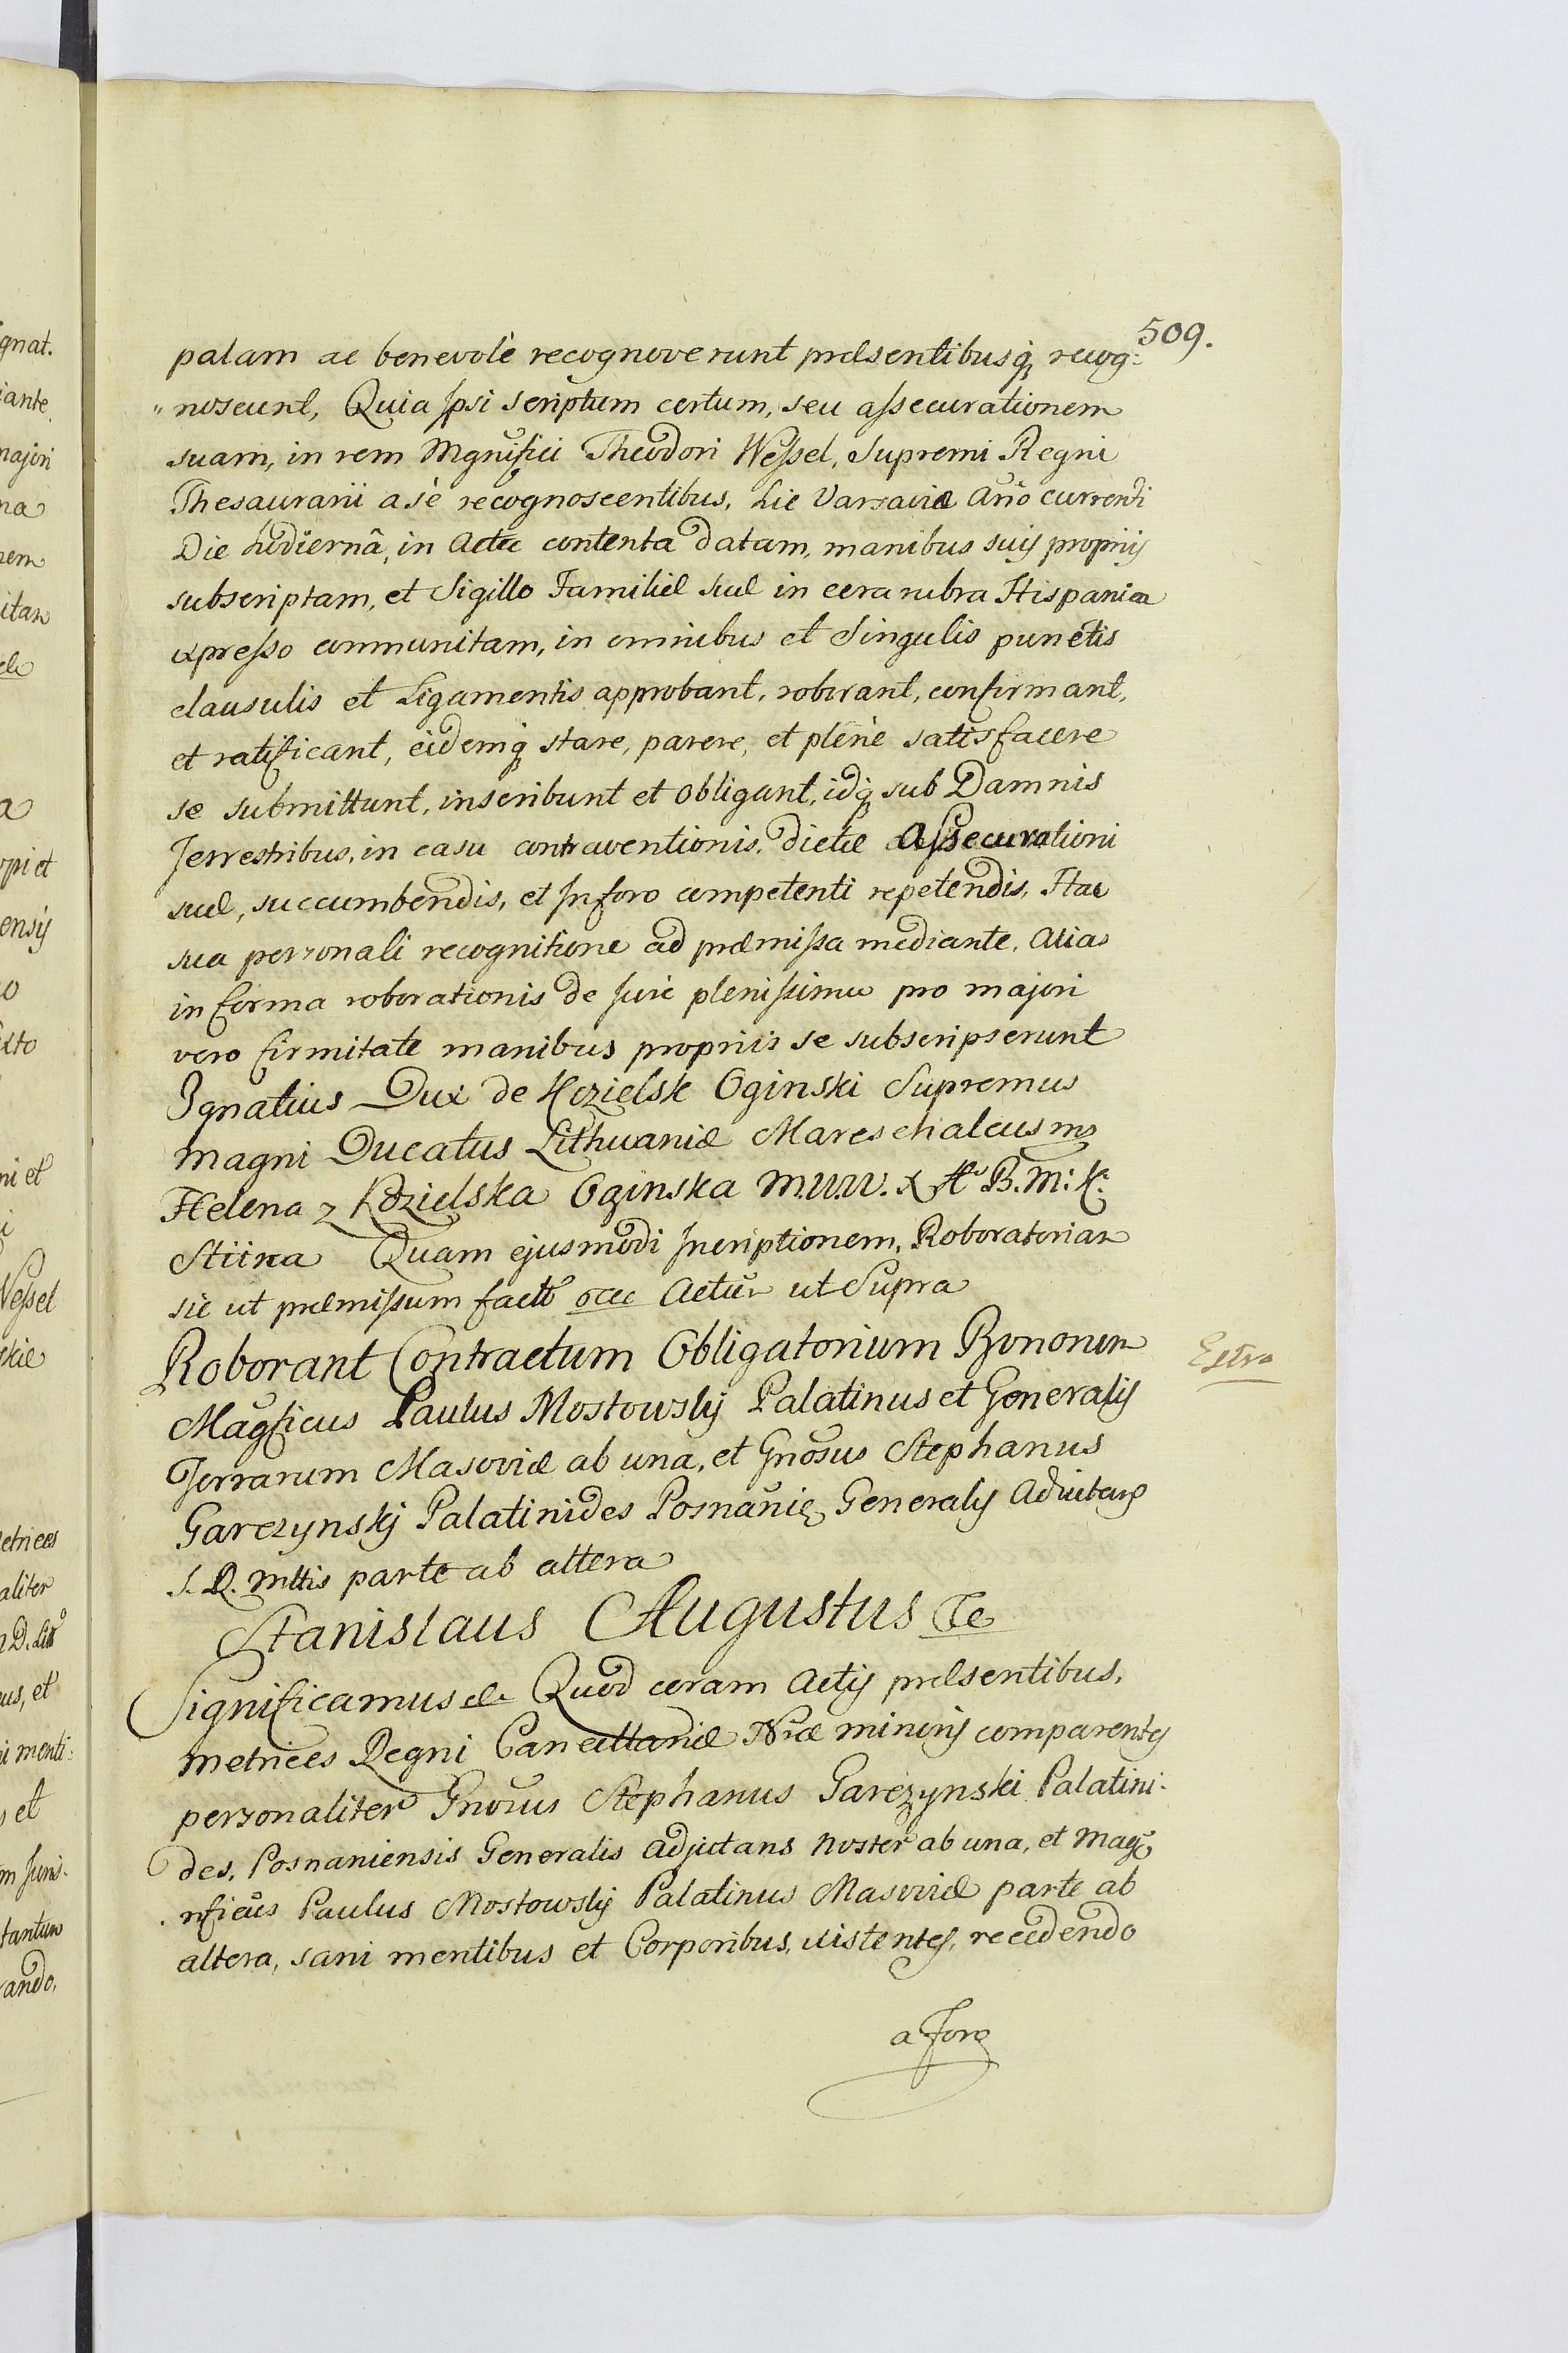 509.
palam ac benevolè recognoverunt præsentibusq́ recog-
"noscunt, Quia Ipsi scriptum certum, seu assecurationem
suam, in rem Mgnifici Theodori Wessel, Supremi Regni
Thesaurarii a sè recognoscentibus, hic Varsaviæ Año currenti
Die hodiernâ, in Actu contenta datam, manibus suis proprijs
subscriptam, et Sigillo Familiæ suæ in cera rubra Hispanica
expresso communitam, in omnibus et Singulis punctis
clausulis et Ligamentis approbant, roborant, confirmant,
et ratificant, eidemq́ stare, parere, et plenè satisfacere
se submittunt, inscribunt et obligant, idq́ sub Damnis
Terrestribus, in casu contraventionis, dictæ Assecurationi
suæ, succumbendis, et In foro competenti repetendis, Hac
sua personali recognitione ad præmissa mediante, Alias
in forma roborationis de Jure plenissima pro majori
vero firmitate manibus proprijs se subscripserunt
Ignatius Dux de Kozielsk Oginski Supremus
Magni Ducatus Lithuaniæ Mareschalcus mp
Helena z Kozielska Oginska M.W.W. X Lt. B. M: K:
Stiina Quam ejusmodi Incriptionem, Roboratoriam
sic ut præmissum factõ etc Actum ut Supra
Roborant Contractum Obligatorium Bononem
Extra
Magficus Paulus Mostowskij Palatinus et Generalis
Terrarum Masoviæ ab una, et Gnosus Stephanus
Garczynskj Palatinides Posnaniæ, Generalis Adiutans
S. R. Mttis parte ab altera
Stanislaus Augustus etc
Significamus etc Quod coram Actis præsentibus,
Metrices Regni Cancellariæ Nræ minoris comparentes
personaliter Gnosus Stephanus Garczynski Palatini-
des, Posnaniensis Generalis Adjutans Noster ab una, et Mag-
nficus Paulus Mostowskij Palatinus Masoviæ parte ab
altera, sani mentibus et Corporibus, existentes, recedendo
a Foro